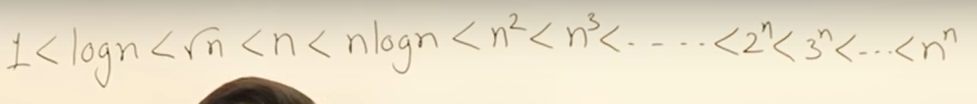 1 < logn < √n < n < nlogn < n² < n³ < - - - - - < 2ⁿ < 3ⁿ < - - - < nⁿ